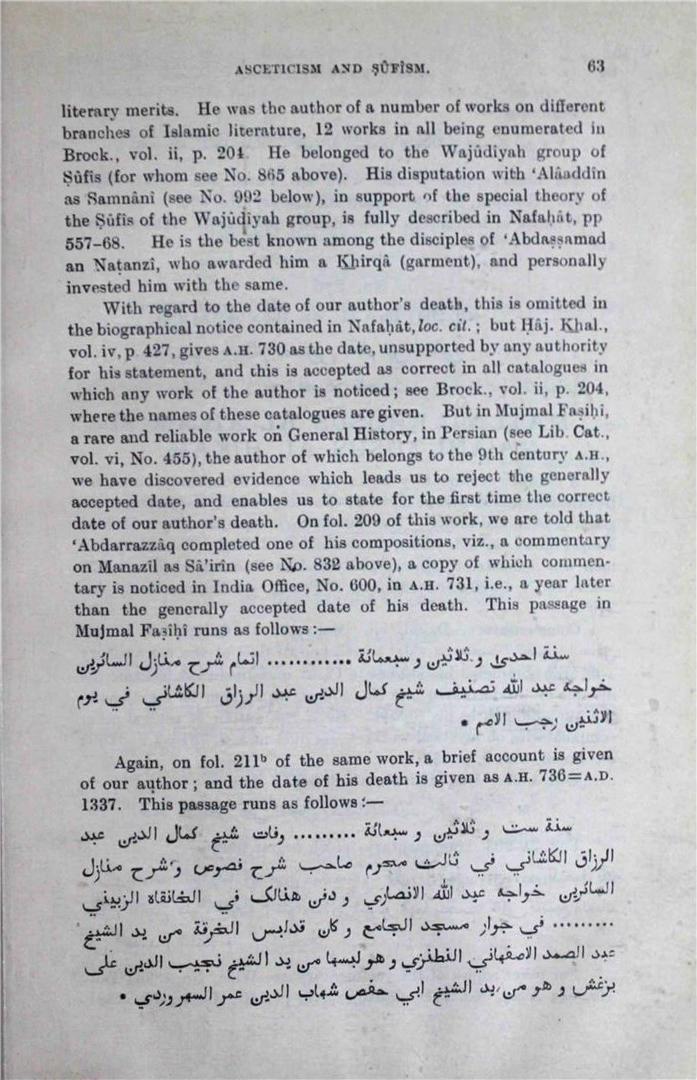 ASCETICISM AND ṢÛFÎSM. 63
literary merits. He was the author of a number of works on different
branches of Islamic literature, 12 works in all being enumerated in
Brock., vol. ii, p. 204. He belonged to the Wajûdîyah group of
Ṣûfîs (for whom see No. 865 above). His disputation with ‘Alâaddîn
as Samnânî (see No. 992 below), in support of the special theory of
the Ṣûfîs of the Wajûdîyah group, is fully described in Nafaḥât, pp
557–68. He is the best known among the disciples of ‘Abdaṣṣamad
an Naṭanzî, who awarded him a Khirqâ (garment), and personally
invested him with the same.
With regard to the date of our author's death, this is omitted in
the biographical notice contained in Nafaḥât, loc. cit.; but Ḥâj. Khal.,
vol. iv, p. 427, gives A.H. 730 as the date, unsupported by any authority
for his statement, and this is accepted as correct in all catalogues in
which any work of the author is noticed; see Brock., vol. ii, p. 204,
where the names of these catalogues are given. But in Mujmal Faṣîḥi,
a rare and reliable work on General History, in Persian (see Lib. Cat.,
vol. vi, No. 455), the author of which belongs to the 9th century A.H.,
we have discovered evidence which leads us to reject the generally
accepted date, and enables us to state for the first time the correct
date of our author's death. On fol. 209 of this work, we are told that
‘Abdarrazzâq completed one of his compositions, viz., a commentary
on Manazîl as Sâ'irîn (see No. 832 above), a copy of which commen-
tary is noticed in India Office, No. 600, in A.H. 731, i.e., a year later
than the generally accepted date of his death. This passage in
Mujmal Faṣîḥî runs as follows :—
سنة احدى و ثلاثين و سبعمائة ............ اتمام شرح منازل السائرين
خواجه عبد الله تصنيف شيخ كمال الدين عبد الرزاق الكاشاني في يوم
الاثنين رجب الاصم •
Again, on fol. 211ᵇ of the same work, a brief account is given
of our author; and the date of his death is given as A.H. 736=A.D.
1337. This passage runs as follows :—
سنة ست و ثلاثين و سبعمائة ......... وفات شيخ كمال الدين عبد
الرزاق الكاشاني في ثالث محرم صاحب شرح فصوص و شرح منازل
السائرين خواجه عبد الله الانصاري و دفن هنالک في الخانقاه الزبيني
......... في جوار مسجد الجامع و كان قدلبس الخرقة من يد الشيخ
عبد الصمد الاصفهاني النطنزي و هو لبسها من يد الشيخ نجيب الدين على
بزغش و هو من يد الشيخ ابي حفص شهاب الدين عمر السهروردي •